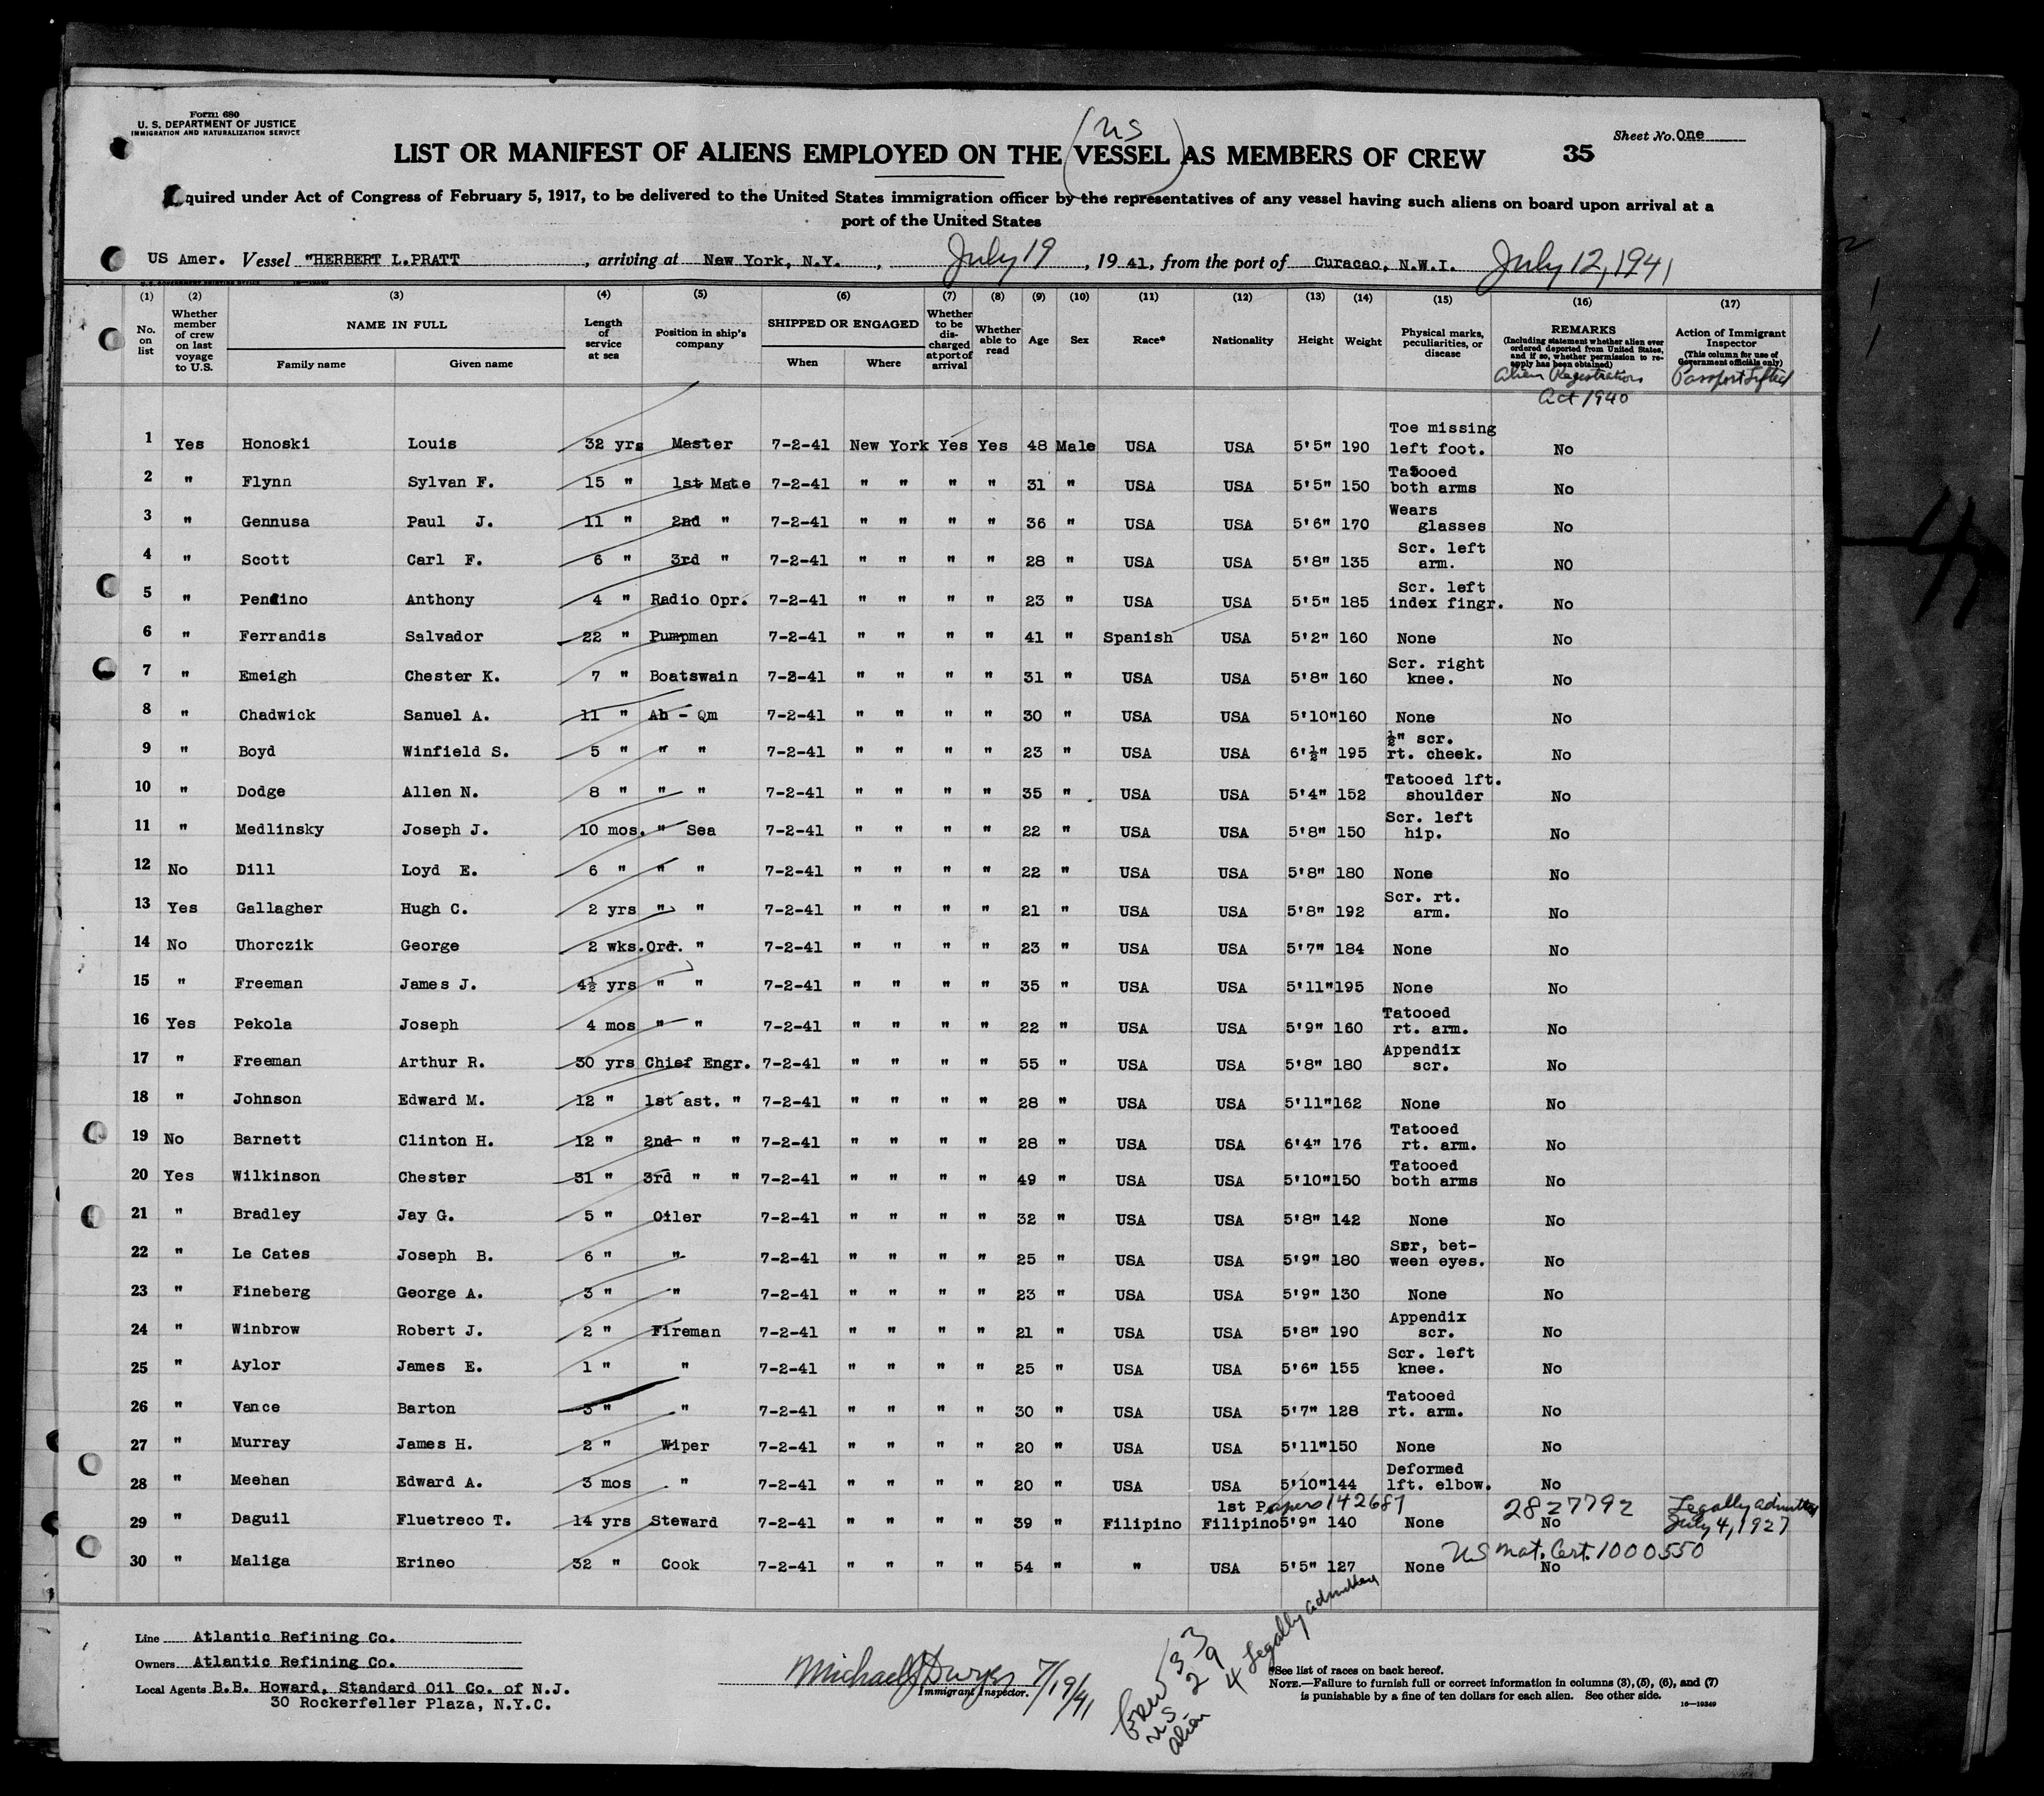 Form 680
U. S. DEPARTMENT OF JUSTICE
IMMIGRATION AND NATURALIZATION SERVICE
Sheet No. One
(US)
LIST OR MANIFEST OF ALIENS EMPLOYED ON THE VESSEL AS MEMBERS OF CREW 35
quired under Act of Congress of February 5, 1917, to be delivered to the United States immigration officer by the representatives of any vessel having such aliens on board upon arrival at a
port of the United States
US Amer. Vessel "HERBERT L.PRATT , arriving at New York, N.Y. , July 19 , 19 41, from the port of Curacao, N.W.I. July 12, 1941
(1) (2) (3) (4) (5) (6) (7) (8) (9) (10) (11) (12) (13) (14) (15) (16) (17)
No. on list Whether member of crew on last voyage to U.S. NAME IN FULL Family name Given name Length of service at sea Position in ship's company SHIPPED OR ENGAGED When Where Whether to be discharged at port of arrival Whether able to read Age Sex Race* Nationality Height Weight Physical marks, peculiarities, or disease REMARKS (Including statement whether alien ever ordered deported from United States, and if so, whether permission to reapply has been obtained) Action of Immigrant Inspector (This column for use of Government officials only)
Alien Registration Act 1940 Passport Lifted
1 Yes Honoski Louis 32 yrs Master 7-2-41 New York Yes Yes 48 Male USA USA 5'5" 190 Toe missing left foot. No
2 " Flynn Sylvan F. 15 " 1st Mate 7-2-41 " " " " 31 " USA USA 5'5" 150 Tatooed both arms No
3 " Gennusa Paul J. 11 " 2nd " 7-2-41 " " " " 36 " USA USA 5'6" 170 Wears glasses No
4 " Scott Carl F. 6 " 3rd " 7-2-41 " " " " 28 " USA USA 5'8" 135 Scr. left arm. NO
5 " Pendino Anthony 4 " Radio Opr. 7-2-41 " " " " 23 " USA USA 5'5" 185 Scr. left index fingr. No
6 " Ferrandis Salvador 22 " Pumpman 7-2-41 " " " " 41 " Spanish USA 5'2" 160 None No
7 " Emeigh Chester K. 7 " Boatswain 7-2-41 " " " " 31 " USA USA 5'8" 160 Scr. right knee. No
8 " Chadwick Sanuel A. 11 " Ab - Qm 7-2-41 " " " " 30 " USA USA 5'10" 160 None No
9 " Boyd Winfield S. 5 " " " 7-2-41 " " " " 23 " USA USA 6'½" 195 ½" scr. rt. cheek. No
10 " Dodge Allen N. 8 " " " 7-2-41 " " " " 35 " USA USA 5'4" 152 Tatooed lft. shoulder No
11 " Medlinsky Joseph J. 10 mos. " Sea 7-2-41 " " " " 22 " USA USA 5'8" 150 Scr. left hip. No
12 No Dill Loyd E. 6 " " " 7-2-41 " " " " 22 " USA USA 5'8" 180 None No
13 Yes Gallagher Hugh C. 2 yrs " " 7-2-41 " " " " 21 " USA USA 5'8" 192 Scr. rt. arm. No
14 No Uhorczik George 2 wks. Ord. " 7-2-41 " " " " 23 " USA USA 5'7" 184 None No
15 " Freeman James J. 4½ yrs " " 7-2-41 " " " " 35 " USA USA 5'11" 195 None No
16 Yes Pekola Joseph 4 mos " " 7-2-41 " " " " 22 " USA USA 5'9" 160 Tatooed rt. arm. No
17 " Freeman Arthur R. 30 yrs Chief Engr. 7-2-41 " " " " 55 " USA USA 5'8" 180 Appendix scr. No
18 " Johnson Edward M. 12 " 1st ast. " 7-2-41 " " " " 28 " USA USA 5'11" 162 None No
19 No Barnett Clinton H. 12 " 2nd " " 7-2-41 " " " " 28 " USA USA 6'4" 176 Tatooed rt. arm. No
20 Yes Wilkinson Chester 31 " 3rd " " 7-2-41 " " " " 49 " USA USA 5'10" 150 Tatooed both arms No
21 " Bradley Jay G. 5 " Oiler 7-2-41 " " " " 32 " USA USA 5'8" 142 None No
22 " Le Cates Joseph B. 6 " " 7-2-41 " " " " 25 " USA USA 5'9" 180 Scr, bet- ween eyes. No
23 " Fineberg George A. 3 " " 7-2-41 " " " " 23 " USA USA 5'9" 130 None No
24 " Winbrow Robert J. 2 " Fireman 7-2-41 " " " " 21 " USA USA 5'8" 190 Appendix scr. No
25 " Aylor James E. 1 " " 7-2-41 " " " " 25 " USA USA 5'6" 155 Scr. left knee. No
26 " Vance Barton 3 " " 7-2-41 " " " " 30 " USA USA 5'7" 128 Tatooed rt. arm. No
27 " Murray James H. 2 " Wiper 7-2-41 " " " " 20 " USA USA 5'11" 150 None No
28 " Meehan Edward A. 3 mos " 7-2-41 " " " " 20 " USA USA 5'10" 144 Deformed lft. elbow. No
1st Papers 142687 2827792 Legally admitted
29 " Daguil Fluetreco T. 14 yrs Steward 7-2-41 " " " " 39 " Filipino Filipino 5'9" 140 None No July 4, 1927
US Nat. Cert. 1000550
30 " Maliga Erineo 32 " Cook 7-2-41 " " " " 54 " " USA 5'5" 127 None No
Line Atlantic Refining Co.
Owners Atlantic Refining Co.
Local Agents B.B. Howard, Standard Oil Co. of N.J.
30 Rockerfeller Plaza, N.Y.C.
Michael J 7/19/41
Immigrant Inspector.
Crew 33
US 29
Alien 4 Legally admitted
*See list of races on back hereof.
NOTE.—Failure to furnish full or correct information in columns (3), (5), (6), and (7)
is punishable by a fine of ten dollars for each alien. See other side.
16—19349